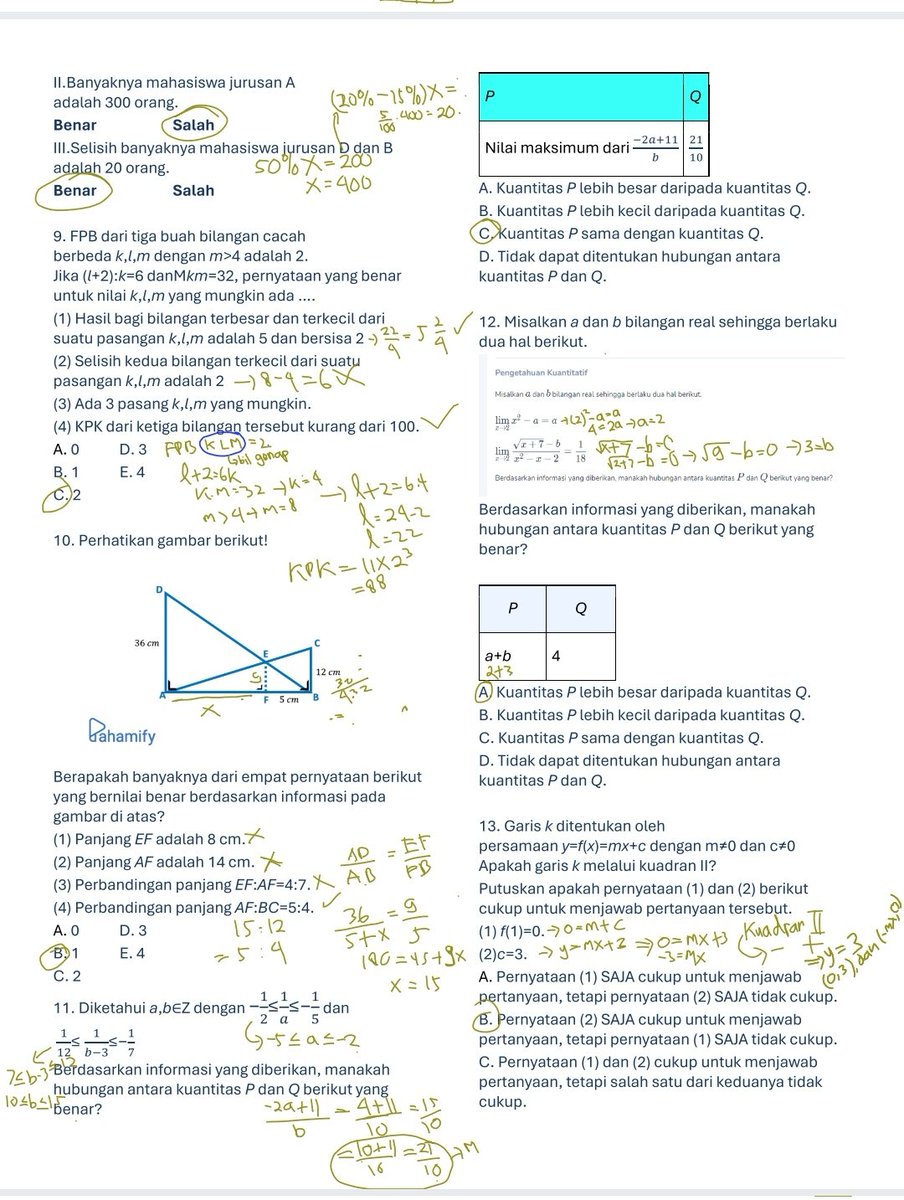 II.Banyaknya mahasiswa jurusan A
adalah 300 orang.
Benar Salah
(20%-15%)X=
5/100 . 400 = 20.
III.Selisih banyaknya mahasiswa jurusan D dan B
adalah 20 orang.
Benar Salah
50% X = 200
X = 400
9. FPB dari tiga buah bilangan cacah
berbeda k,l,m dengan m>4 adalah 2.
Jika (l+2):k=6 danMkm=32, pernyataan yang benar
untuk nilai k,l,m yang mungkin ada ....
(1) Hasil bagi bilangan terbesar dan terkecil dari
suatu pasangan k,l,m adalah 5 dan bersisa 2 → 22/4 = 5 2/4 ✓
(2) Selisih kedua bilangan terkecil dari suatu
pasangan k,l,m adalah 2 → 8-4=6 X
(3) Ada 3 pasang k,l,m yang mungkin.
(4) KPK dari ketiga bilangan tersebut kurang dari 100. ✓
A. 0 D. 3
B. 1 E. 4
C. 2
FPB KLM = 2
↳ bil genap
l+2=6k
K.M=32 → k=4
m>4 → m=8
→ l+2=6.4
l=24-2
l=22
KPK = 11x2³
=88
10. Perhatikan gambar berikut!
D
36 cm
E
C
9
12 cm
A
F 5 cm B
X
Pahamify
Berapakah banyaknya dari empat pernyataan berikut
yang bernilai benar berdasarkan informasi pada
gambar di atas?
(1) Panjang EF adalah 8 cm. X
(2) Panjang AF adalah 14 cm. X
(3) Perbandingan panjang EF:AF=4:7. X
(4) Perbandingan panjang AF:BC=5:4. ✓
A. 0 D. 3
B. 1 E. 4
C. 2
15:12
= 5:4
AD/AB = EF/FB
36/5+x = 9/5
180=45+9x
x=15
11. Diketahui a,b∈Z dengan −1/2≤1/a≤−1/5 dan
1/12≤1/b−3≤−1/7
↳ -5 ≤ a ≤ -2
7≤b-3≤12
10≤b≤15
Berdasarkan informasi yang diberikan, manakah
hubungan antara kuantitas P dan Q berikut yang
benar?
-2a+11/b = 4+11/10 = 15/10
= 10+11/10 = 21/10 → M
P Q
Nilai maksimum dari −2a+11/b 21/10
A. Kuantitas P lebih besar daripada kuantitas Q.
B. Kuantitas P lebih kecil daripada kuantitas Q.
C. Kuantitas P sama dengan kuantitas Q.
D. Tidak dapat ditentukan hubungan antara
kuantitas P dan Q.
12. Misalkan a dan b bilangan real sehingga berlaku
dua hal berikut.
Pengetahuan Kuantitatif
Misalkan a dan b bilangan real sehingga berlaku dua hal berikut.
lim x→2 x² − a = a → (2)²-a=a
4=2a → a=2
lim x→2 √x+7 − b / x² − x − 2 = 1/18
√x+7 - b = 0
√2+7 - b = 0 → √9 - b = 0 → 3=b
Berdasarkan informasi yang diberikan, manakah hubungan antara kuantitas P dan Q berikut yang benar?
Berdasarkan informasi yang diberikan, manakah
hubungan antara kuantitas P dan Q berikut yang
benar?
P Q
a+b 4
2+3
A. Kuantitas P lebih besar daripada kuantitas Q.
B. Kuantitas P lebih kecil daripada kuantitas Q.
C. Kuantitas P sama dengan kuantitas Q.
D. Tidak dapat ditentukan hubungan antara
kuantitas P dan Q.
13. Garis k ditentukan oleh
persamaan y=f(x)=mx+c dengan m≠0 dan c≠0
Apakah garis k melalui kuadran II?
Putuskan apakah pernyataan (1) dan (2) berikut
cukup untuk menjawab pertanyaan tersebut.
(1) f(1)=0. → 0=m+c
(2)c=3. → y=mx+3 ⇒ 0=mx+3
-3=mx
Kuadran II
- +
⇒ y=3
A. Pernyataan (1) SAJA cukup untuk menjawab
pertanyaan, tetapi pernyataan (2) SAJA tidak cukup.
B. Pernyataan (2) SAJA cukup untuk menjawab
pertanyaan, tetapi pernyataan (1) SAJA tidak cukup.
C. Pernyataan (1) dan (2) cukup untuk menjawab
pertanyaan, tetapi salah satu dari keduanya tidak
cukup.